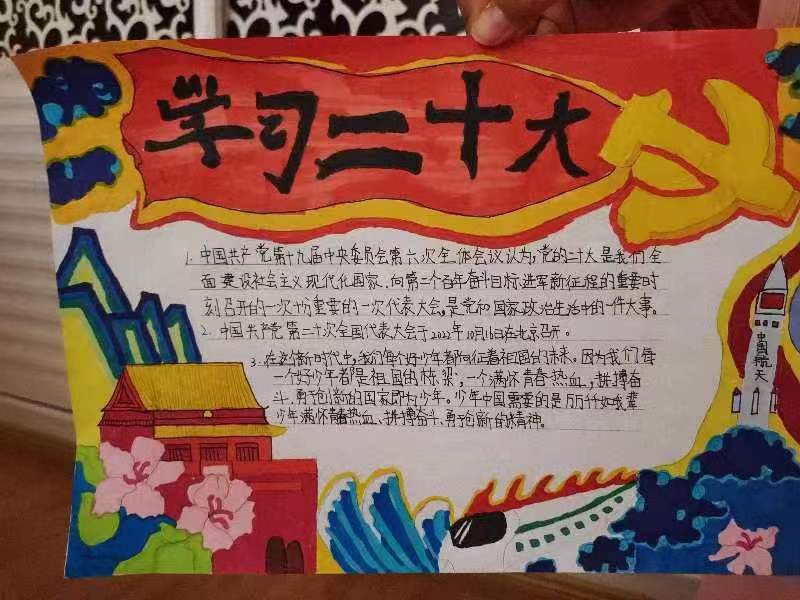 学习二十大
1. 中国共产党第十九届中央委员会第六次全体会议认为,党的二十大是我们全
面建设社会主义现代化国家、向第二个百年奋斗目标进军新征程的重要时
刻召开的一次十分重要的一次代表大会,是党和国家政治生活中的一件大事。
2. 中国共产党第二十次全国代表大会于2022年10月16日在北京召开。
3. 在这个新时代中,我们每个好少年都象征着祖国的未来,因为我们每
一个好少年都是祖国的栋梁,一个满怀青春热血,拼搏奋
斗、勇于创新的国家即为少年。少年中国需要的是万万千千如我辈
少年满怀青春热血、拼搏奋斗、勇于创新的精神。
中国航天